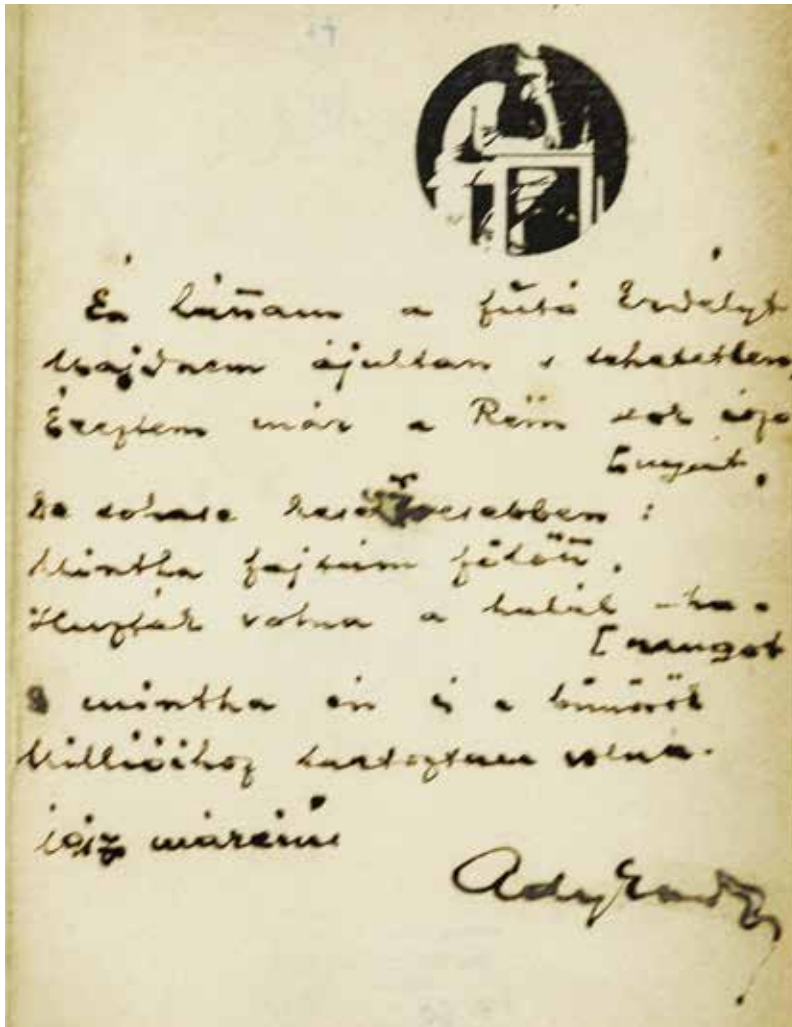 És láttam a futó Erdélyt
Majdnem ájultan s tehetetlen,
Éreztem már a Rém sok iszo
[nyait,
De sohase keservesebben:
Mintha fajtám fölött,
Huzták volna a halál-ha-
[rangot
S mintha én is a bünösök
Millióihoz tartoztam volna.
március
Ady Endre